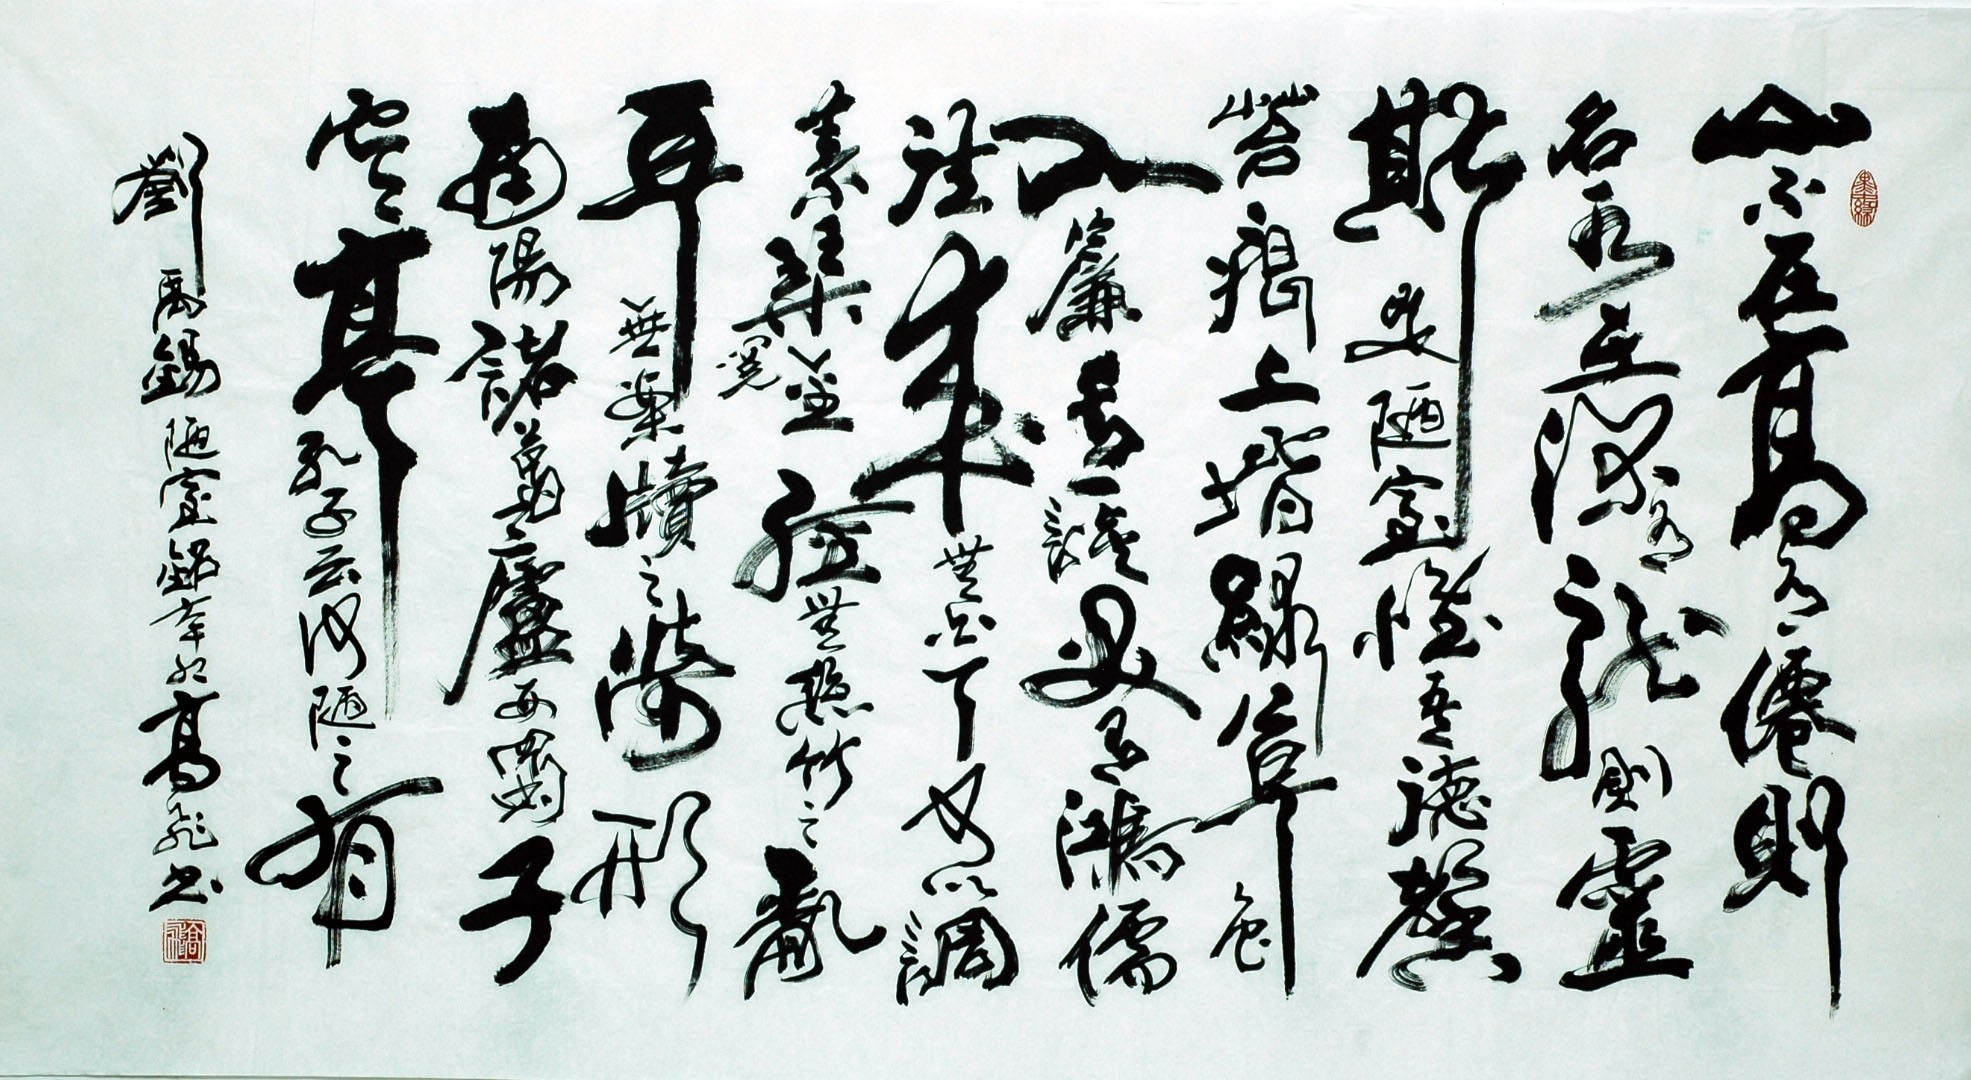 山不在高有僊則
名水在深有龍則靈
斯是陋室惟吾德馨
苔痕上階綠草色
入簾青談笑有鴻儒
往來無白丁可以調
素琴閱金經無絲竹之亂
耳無案牘之勞形
南陽諸葛廬西蜀子
雲亭孔子云何陋之有
劉禹錫陋室銘辛卯高飛書